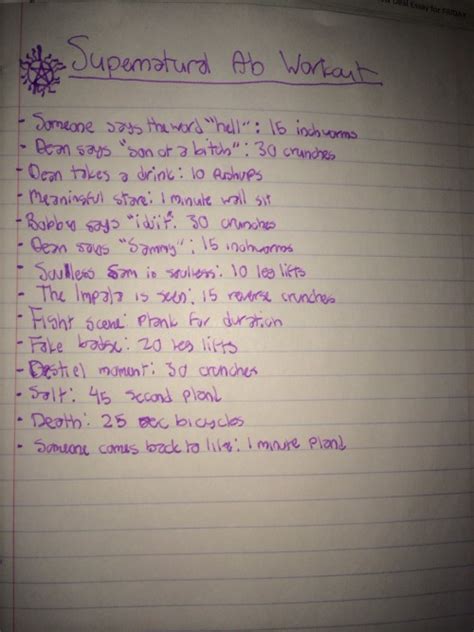 Deal Essay for FRIDAY
Supernatural Ab Workout
- Someone says the word "hell": 15 inchworms
- Dean says "son of a bitch": 30 crunches
- Dean takes a drink: 10 pushups
- Meaningful stare: 1 minute wall sit
- Bobby says "idjit": 30 crunches
- Dean says "Sammy": 15 inchworms
- Soulless Sam is soulless: 10 leg lifts
- The Impala is seen: 15 reverse crunches
- Fight scene: plank for duration
- Fake badge: 20 leg lifts
- Destiel moment: 30 crunches
- Salt: 45 second plank
- Death: 25 sec bicycles
- Someone comes back to life: 1 minute plank